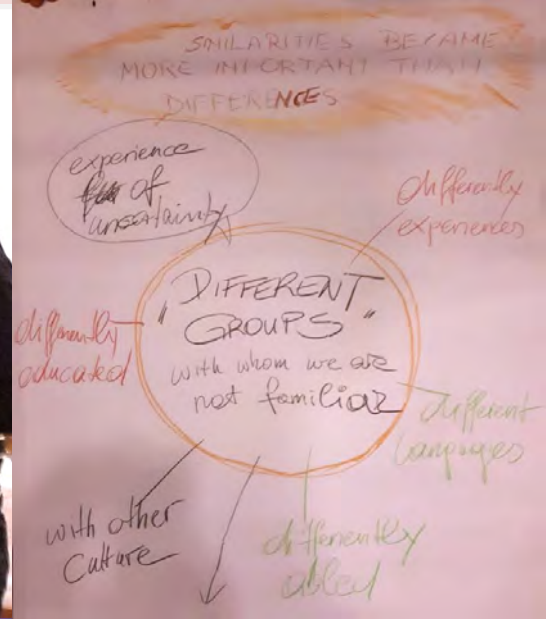 SMILARITIES BECAME
MORE IMPORTANT THAN
DIFFERENCES
experience
of
unsertainty
differently
experiences
„DIFFERENT
GROUPS"
with whom we are
not familiar
differently
educated
different
languages
with other
Culture
differently
abled